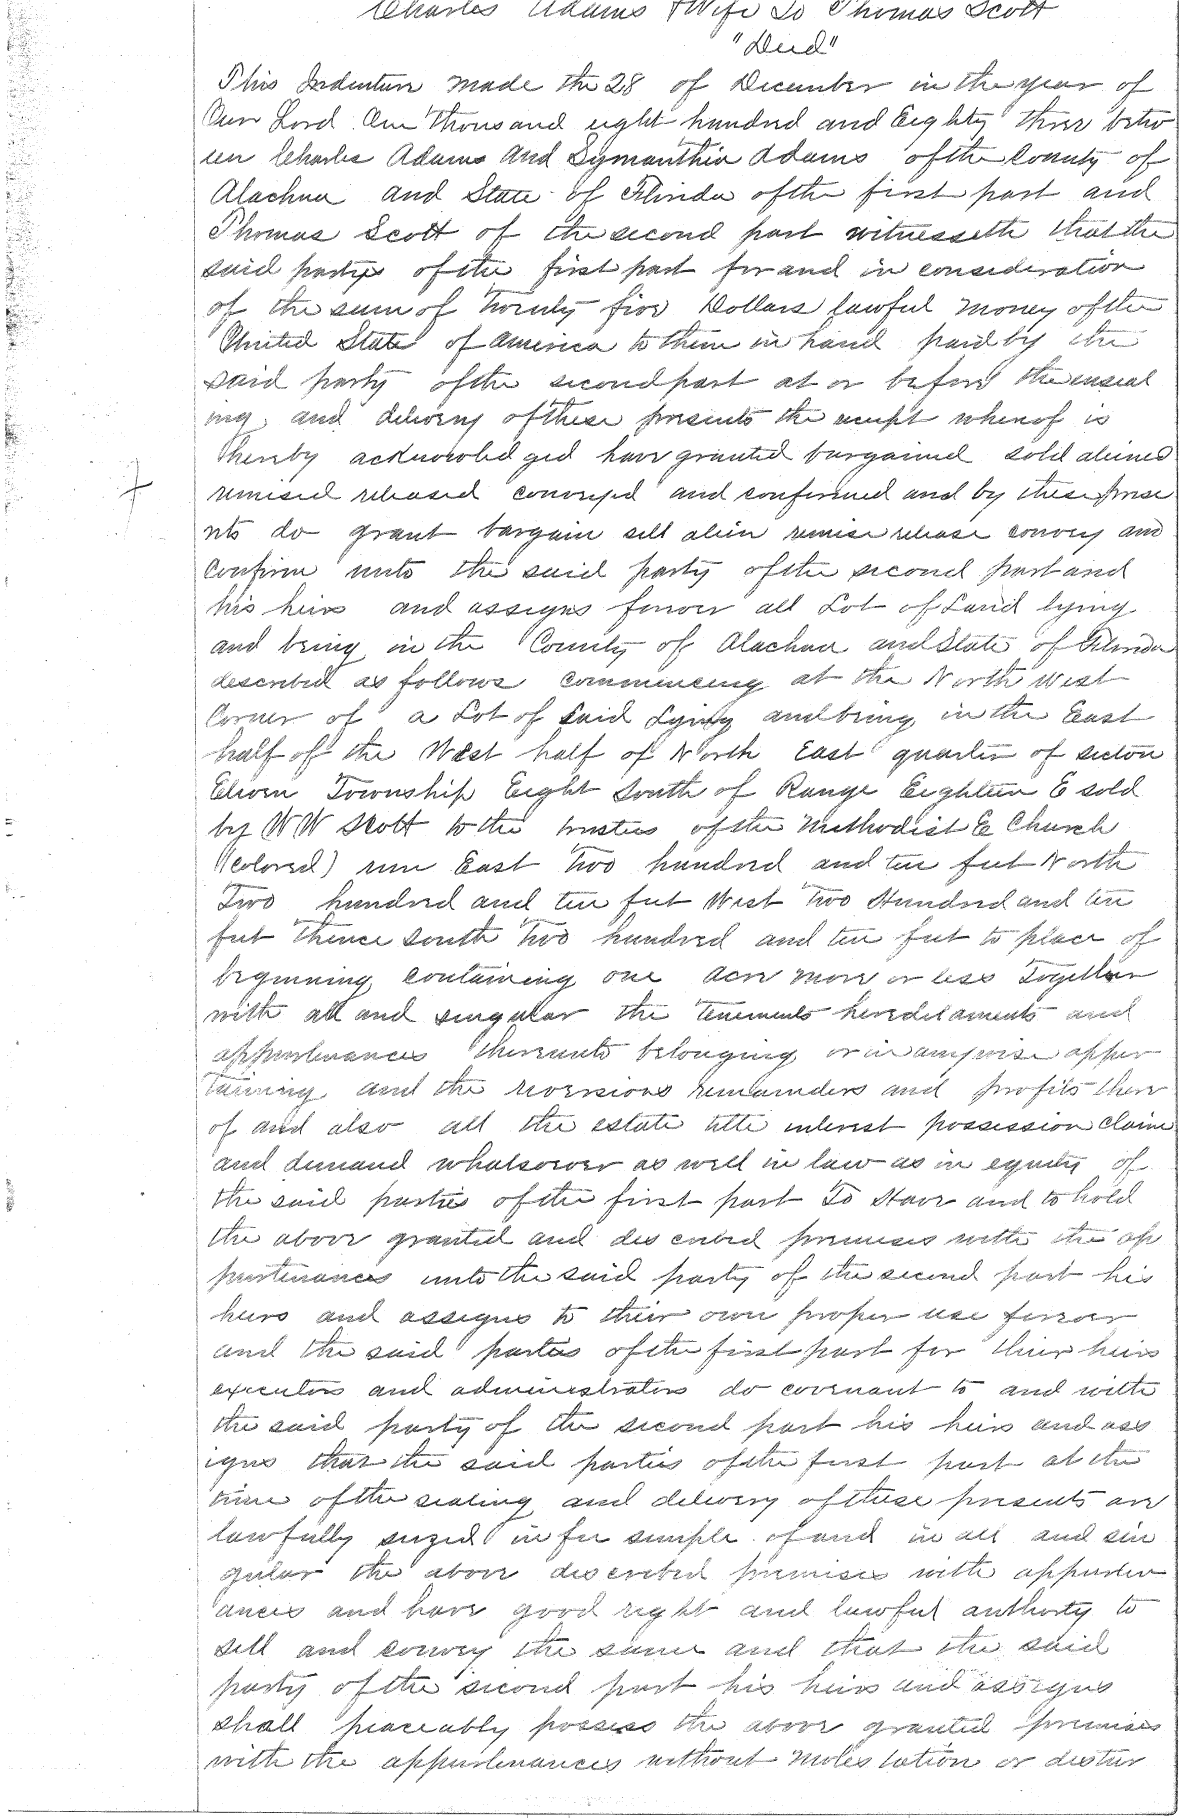 Charles Adams & Wife To Thomas Scott
"Deed"
This Indenture made the 28 of December in the year of
Our Lord One thousand eight hundred and Eighty three betw
een Charles Adams and Symanthia Adams of the County of
Alachua and State of Florida of the first part and
Thomas Scott of the second part witnesseth that the
said parties of the first part for and in consideration
of the sum of Twenty five Dollars lawful money of the
United State of America to them in hand paid by the
said party of the second part at or before the enseal
ing and delivery of these presents the receipt whereof is
hereby acknowledged have granted bargained sold aliened
remised released conveyed and confirmed and by these prese
nts do grant bargain sell alien remise release convey and
Confirm unto the said party of the second part and
his heirs and assigns forever all Lot of Land lying
and being in the County of Alachua and State of Florida
described as follows commencing at the North West
Corner of a Lot of Said Lying and being in the East
half of the West half of North East quarter of section
Eleven Township Eight South of Range Eighteen E sold
by W W Scott to the trustees of the Methodist E Church
(Colored) run East Two hundred and ten feet North
Two hundred and ten feet West Two Hundred and ten
feet thence South Two hundred and ten feet to place of
beginning containing one acre more or less Together
with all and singular the Tenements hereditaments and
appurtenances thereunto belonging or in anywise apper
taining and the reversions remainders and profits there
of and also all the estate title interest possession claim
and demand whatsoever as well in law as in equity of
the said parties of the first part To Have and to hold
the above granted and described premises with the ap
purtenances unto the said party of the second part his
heirs and assigns to their own proper use forever
and the said parties of the first part for their heirs
executors and administrators do covenant to and with
the said party of the second part his heirs and ass
igns that the said parties of the first part at the
time of the sealing and delivery of these presents are
lawfully seized in fee simple of and in all and sin
gular the above described premises with appurten
ances and have good right and lawful authority to
sell and convey the same and that the said
party of the second part his heirs and assigns
shall peaceably possess the above granted premises
with the appurtenances without molestation or distur